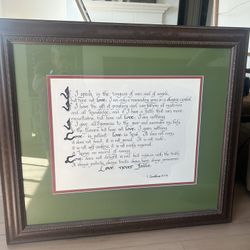 I speak in the tongues of men and of angels,
but have not Love, I am only a resounding gong or a clanging cymbal.
If I have the gift of prophecy and can fathom all mysteries
and all knowledge, and if I have a faith that can move
mountains, but have not Love, I am nothing.
If I give all I possess to the poor and surrender my body
to the flames, but have not Love, I gain nothing.
Love is patient, Love is kind. It does not envy,
it does not boast, it is not proud. It is not rude,
it is not self-seeking, it is not easily angered,
it keeps no record of wrongs.
Love does not delight in evil but rejoices with the truth.
It always protects, always trusts, always hopes, always perseveres.
Love never fails.